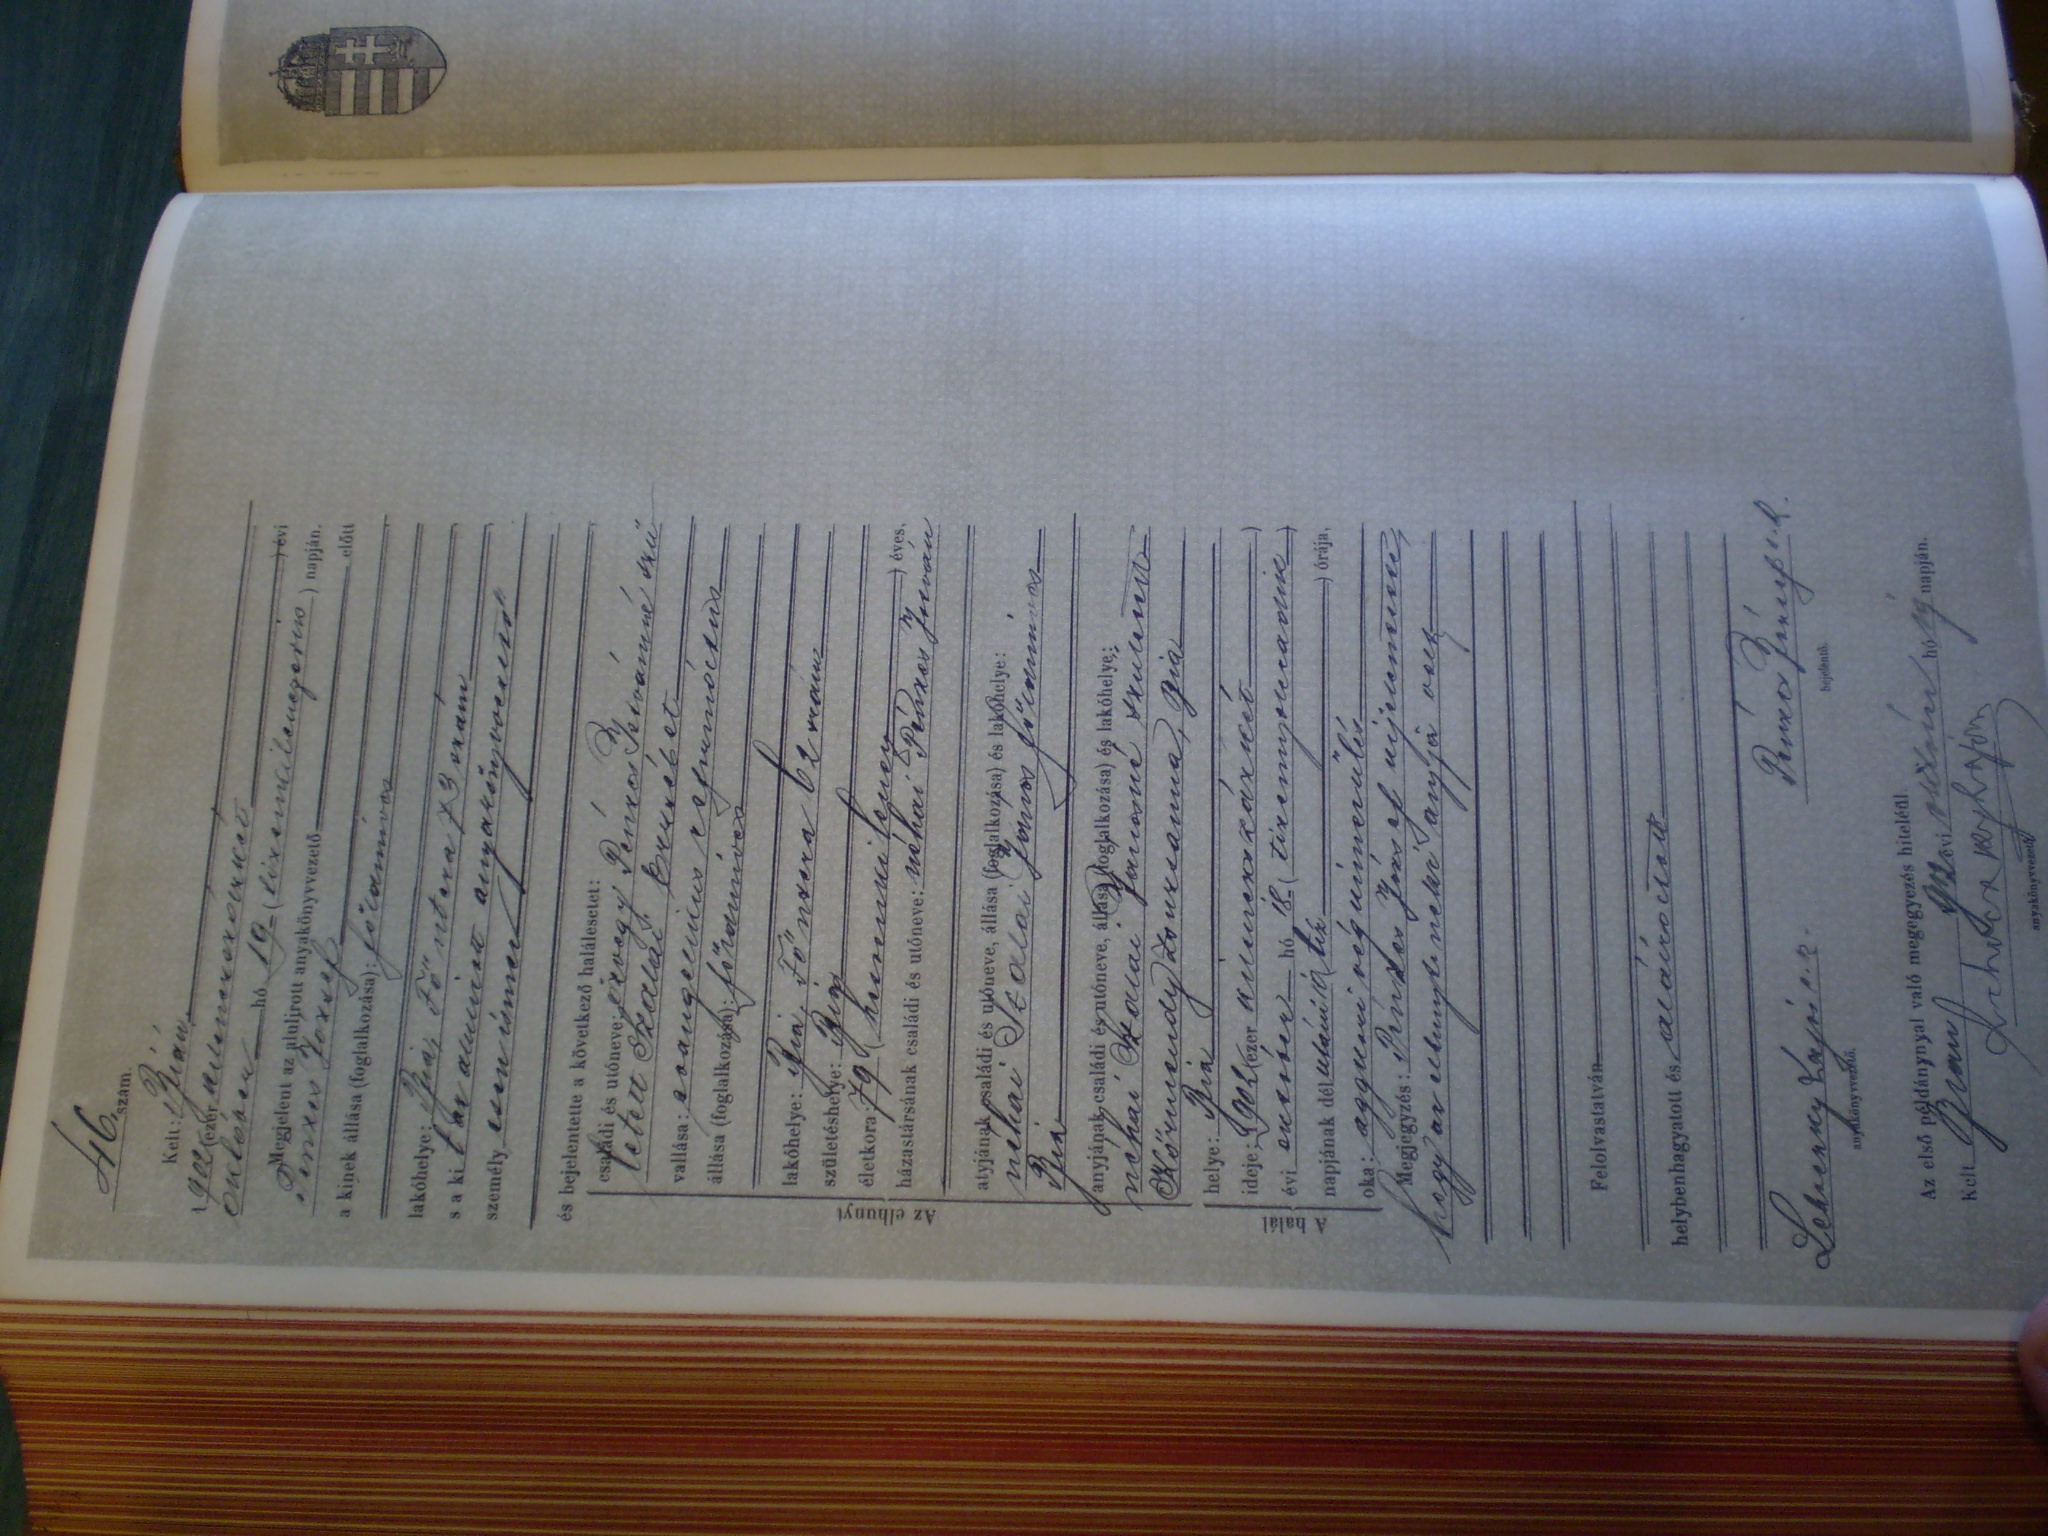 46. szám.
Kelt: Bián,
1902 (ezer kilenczszázkét) évi
október hó 19. (tizenkilenczedik) napján.
Megjelent az alulirott anyakönyvvezető előtt
Pénzes József
a kinek állása (foglalkozása): földmíves
lakóhelye: Bia, Fő utcza 73 szám
s a ki t az alulirott anyakönyvvezető
személyesen ismer
és bejelentette a következő halálesetet:
családi és utóneve: özvegy Pénzes Istvánné szü
letett Szalai Erzsébet
vallása: evangelmius református
állása (foglalkozása): földmíves
lakóhelye: Bia, Fő utcza 62 szám
születéshelye: Bia
életkora: 79 (hetvenkilencz) éves,
házastársának családi és utóneve: néhai Pénzes István
atyjának családi és utóneve, állása (foglalkozása) és lakóhelye:
néhai Szalai János földmíves
Bia
anyjának családi és utóneve, állása (foglalkozása) és lakóhelye:
néhai Szalai Jánosné született
Körmendy Zsuzsanna, Bia
helye: Bia
ideje: 1902 (ezer kilenczszázkét)
évi október hó 18. (tizennyolczadik)
napjának délután (tíz) órája,
oka: aggkori végkimerülés
Megjegyzés: Pénzes József kijelentette,
hogy az elhunytnak anyja volt
Felolvastatván
helybenhagyatott és aláíratott
anyakönyvvezető. Pénzes József s. k.
bejelentő.
Az első példánynyal való megegyezés hiteléül.
Kelt Bián 902 évi október hó 19 napján.
anyakönyvvezető.
Az elhunyt
A halál